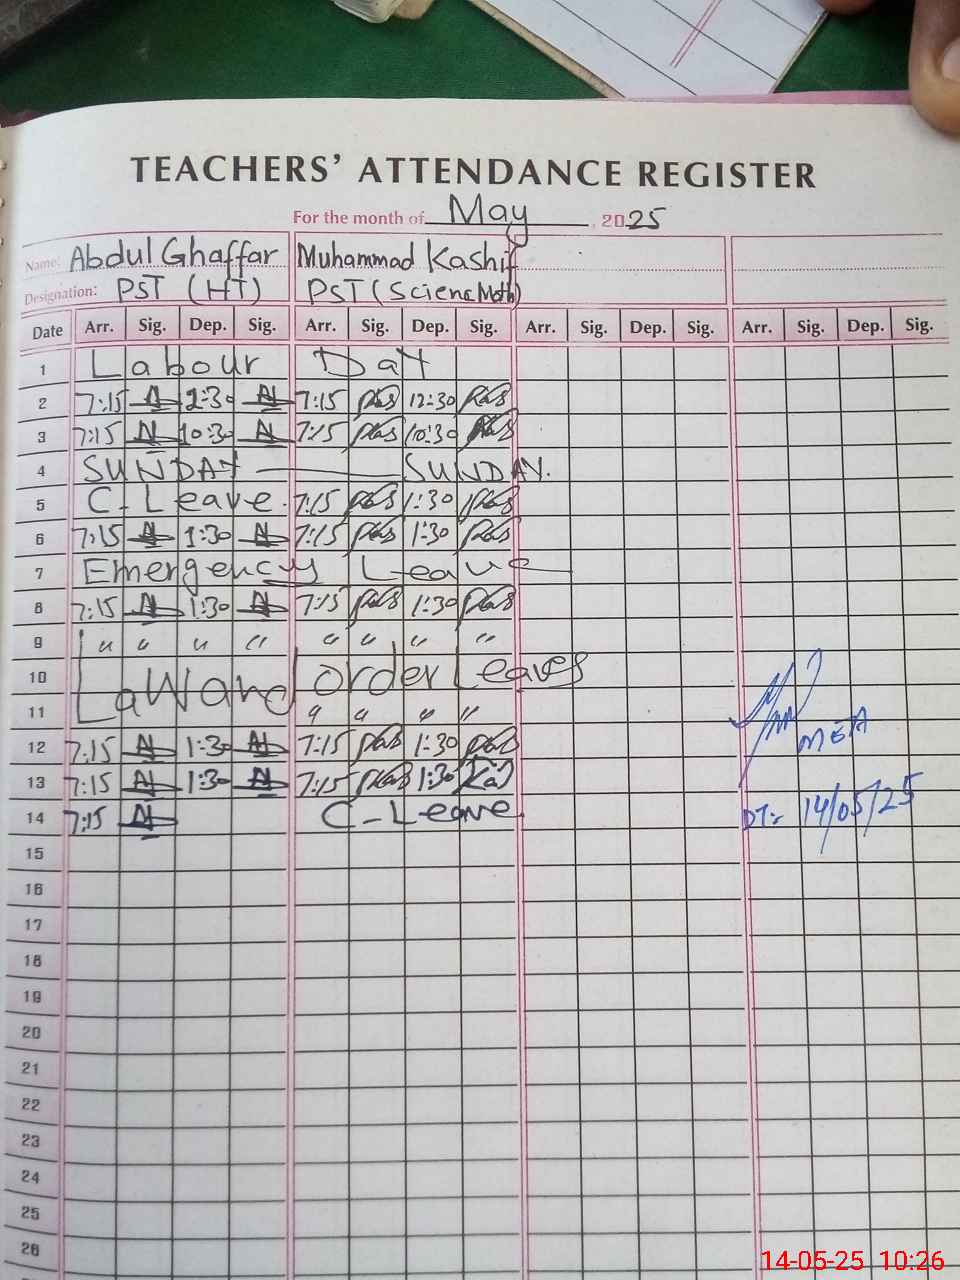 TEACHERS' ATTENDANCE REGISTER
For the month of May, 2025
Name: Abdul Ghaffar Muhammad Kashif
Designation: PST (HT) PST (Scienc Math)
Date Arr. Sig. Dep. Sig. Arr. Sig. Dep. Sig. Arr. Sig. Dep. Sig. Arr. Sig. Dep. Sig.
1 Labour Day
2 7:15 12:30 7:15 12:30
3 7:15 10:30 7:15 10:30
4 SUNDAY SUNDAY.
5 C-Leave. 7:15 1:30
6 7:15 1:30 7:15 1:30
7 Emergency Leave
8 7:15 1:30 7:15 1:30
9 " " " " " " " "
10 Law and order Leaves
11 " " " "
12 7:15 1:30 7:15 1:30
MEA
13 7:15 1:30 7:15 1:30
14 7:15 C-Leave
DT:- 14/05/25
15
16
17
18
19
20
21
22
23
24
25
26
14-05-25 10:26